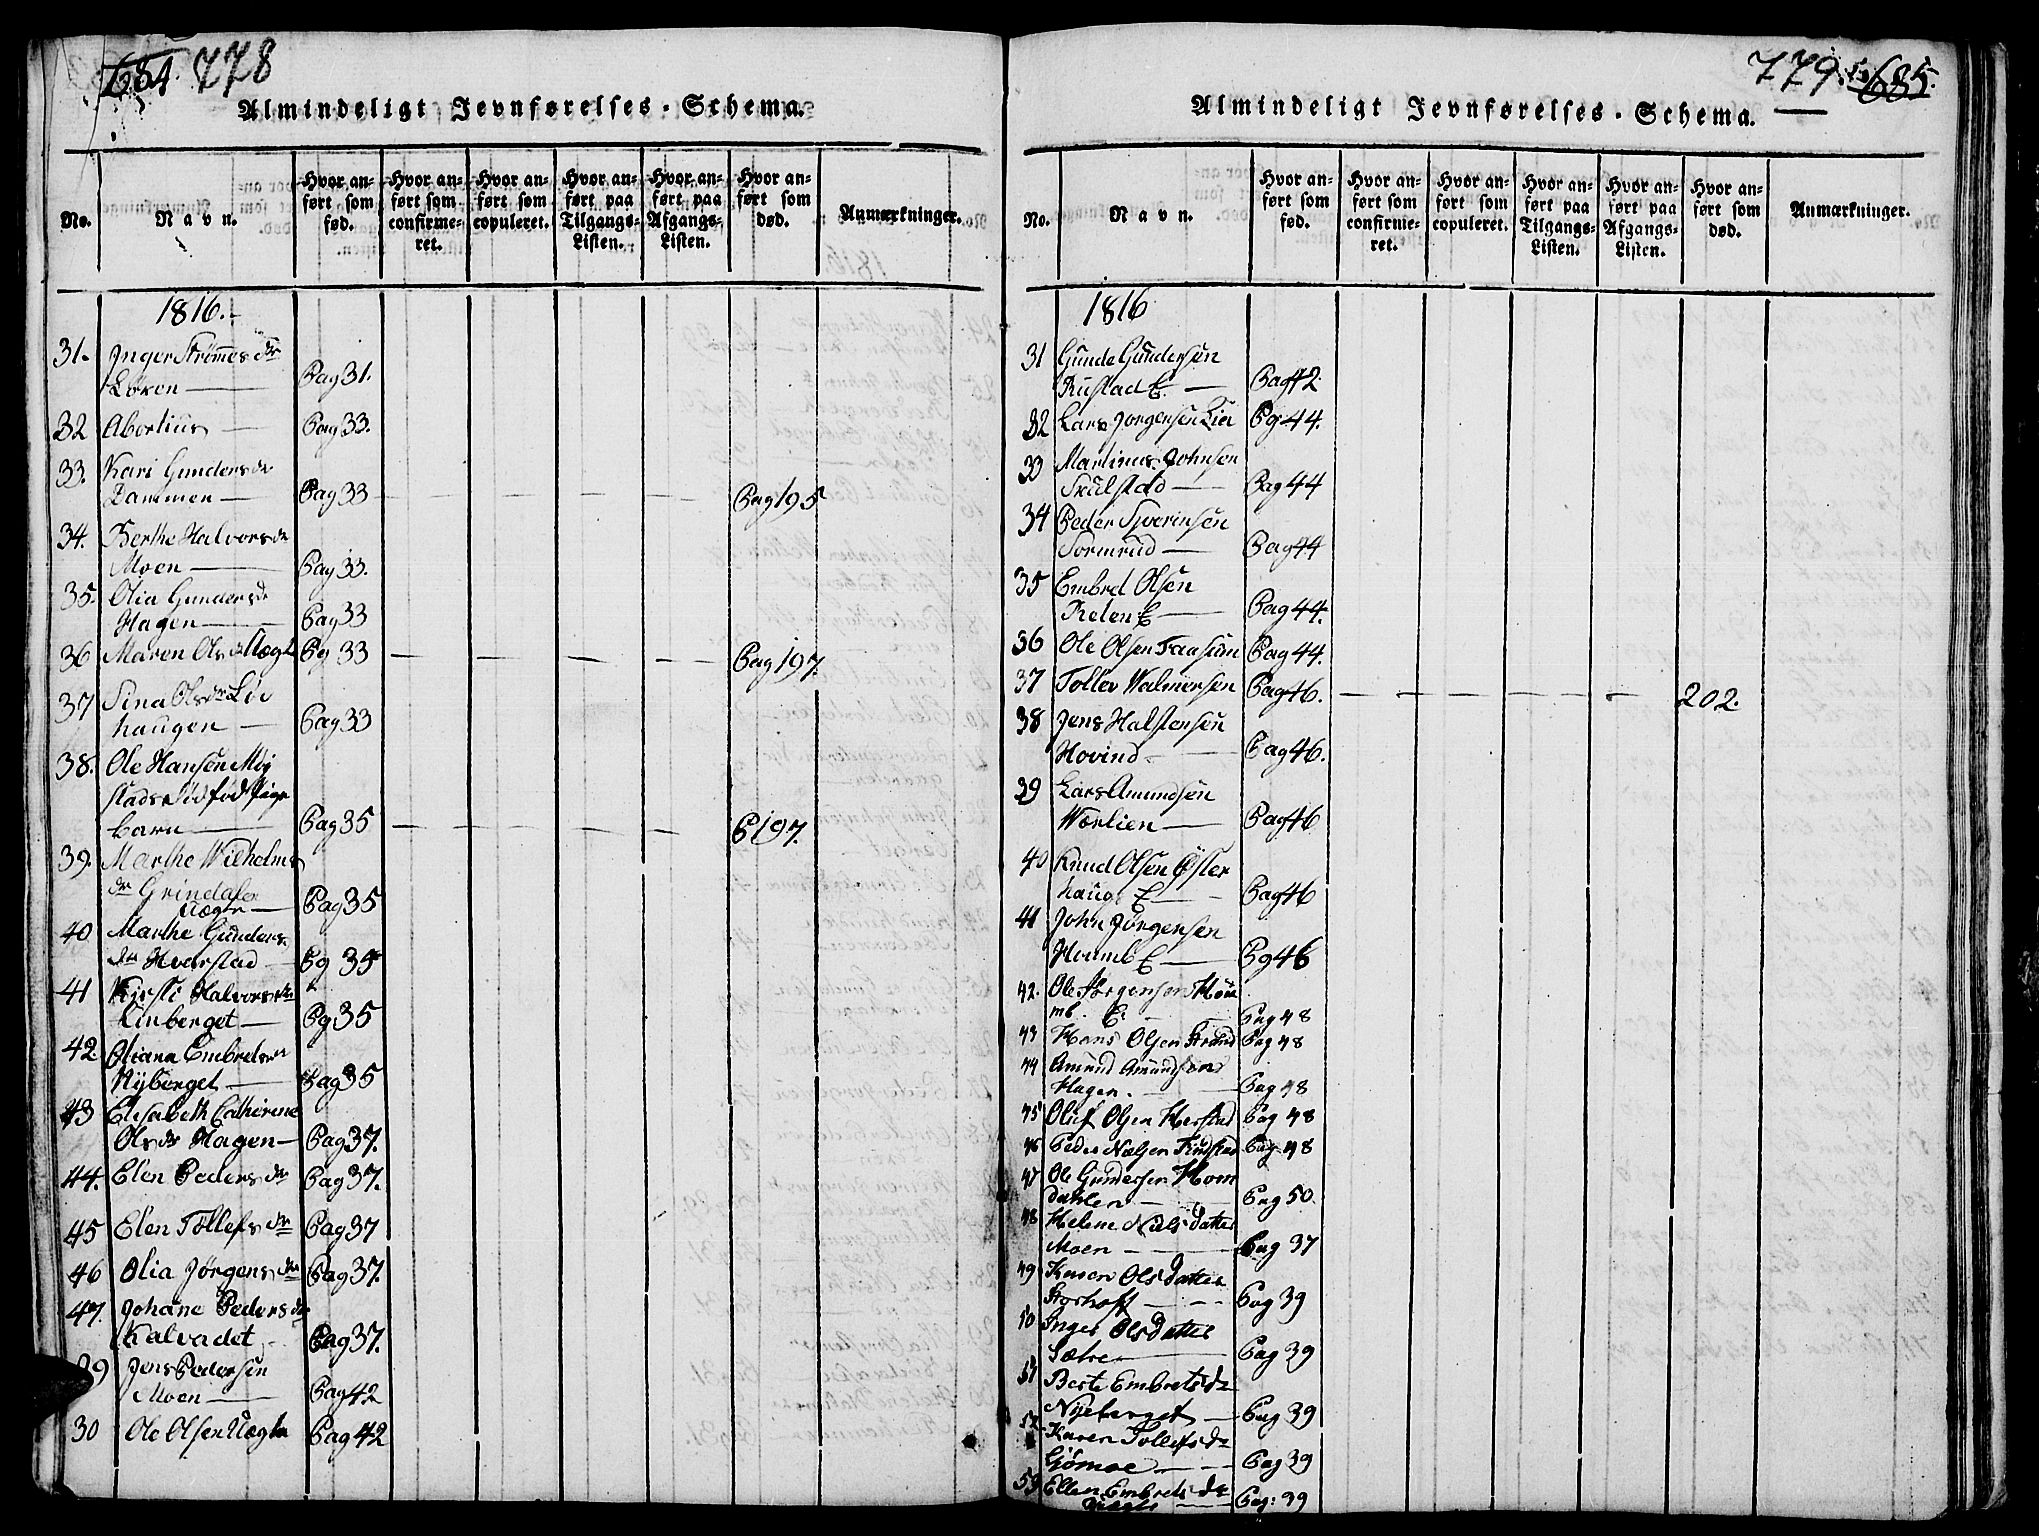 684. 778
Almindeligt Jevnførelses-Schema.
No.
Navn.
Hvor anført som fød.
Hvor anført som confirmeret.
Hvor anført som copuleret.
Hvor anført paa Tilgangs-Listen.
Hvor anført paa Afgangs-Listen.
Hvor anført som død.
Anmærkninger.
1816.
31. Inger Strømes dr
Løren — Pag 31.
32 Abortius — Pag 33.
33. Kari Gunders dr
Dammen — Pag 33 — Pag 195
34. Berthe Halvors dr
Moen — Pag 33.
35. Olia Gunders dr
Hagen — Pag 33
36 Maren Ols dr Pg 33 — Pag 197.
37 Sina Ols dr Løe
haugen — Pag 33
38. Ole Hansen Møj
stads død fød Pige
barn — Pag 35 — P 197.
39. Marthe Wilhelms
dr Grindals
Pag 35
40 Marthe Gunders
dr Hverstad — Pg 35
41 Kjersti Halvors dr
Linberget — Pg 35
42 Oliana Embrets dr
Nyberget — Pag 35
43 Elisabeth Cathrine
Ols dr Hagen — Pag 37.
44. Elen Peders dr Pag 37.
45 Elen Tollefs dr Pag 37
46 Olia Jørgens dr Pag 37.
47. Johane Peders dr
Kalvadet Pag 37.
29 Jens Pedersen
Moen — Pag 42
30 Ole Olsen Pag 42
779. 685.
Almindeligt Jevnførelses-Schema.
No.
Navn.
Hvor anført som fød.
Hvor anført som confirmeret.
Hvor anført som copuleret.
Hvor anført paa Tilgangs-Listen.
Hvor anført paa Afgangs-Listen.
Hvor anført som død.
Anmærkninger.
1816
31 Gunde Gundersen
Rustad E. — Pag 42
32 Lars Jorgensen Lier Pg 44.
33 Martinus Johnsen
Skulstad — Pag 44
34 Peder Syverinsen
Sormrud — Pag 44
35 Embret Olsen
E — Pag 44.
36 Ole Olsen Faasum Pag 44.
37 Tollev Halmersen Pag 46. — 202.
38 Jens Halstensen
Hovind — Pag 46.
39 Lars Amundsen
Wærlien — Pag 46
40 Knud Olsen Øster
haug E — Pag 46
41 John Jørgensen
E — Pg 46
42. Ole Jørgensen
mb. E. Pag 48
43 Hans Olsen Strand Pag 48
44 Amund Amundsen
Hagen. Pag 48
45 Oluf Olsen Herstad Pag 48
46 Peder Nielsen Pag 48
47 Ole Gundersen Hom
dahlen — Pag 50.
48 Helene Niels Datter
Moen — Pag 37
49 Karen Ols Datter
Pag 39
50 Inger Ols Datter
Sætre — Pag 39
51 Berte Embrets dr
Nyeberget — Pag 39
52 Karen Tollefs dr
Gjømoe — Pag 39
53 Ellen Embrets dr
Pag: 39